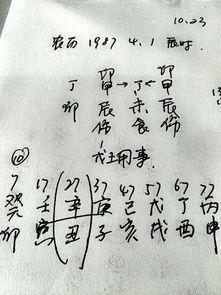 10.23
农历 1987 4.1 辰时
卯 卯
丁 甲 → 丁 ← 甲
卯 辰 未 辰
伤 食 伤
戊土用事
10
7 17 27 37 47 57 67 77
癸 壬 辛 庚 己 戊 丁 丙
卯 寅 丑 子 亥 戌 酉 申